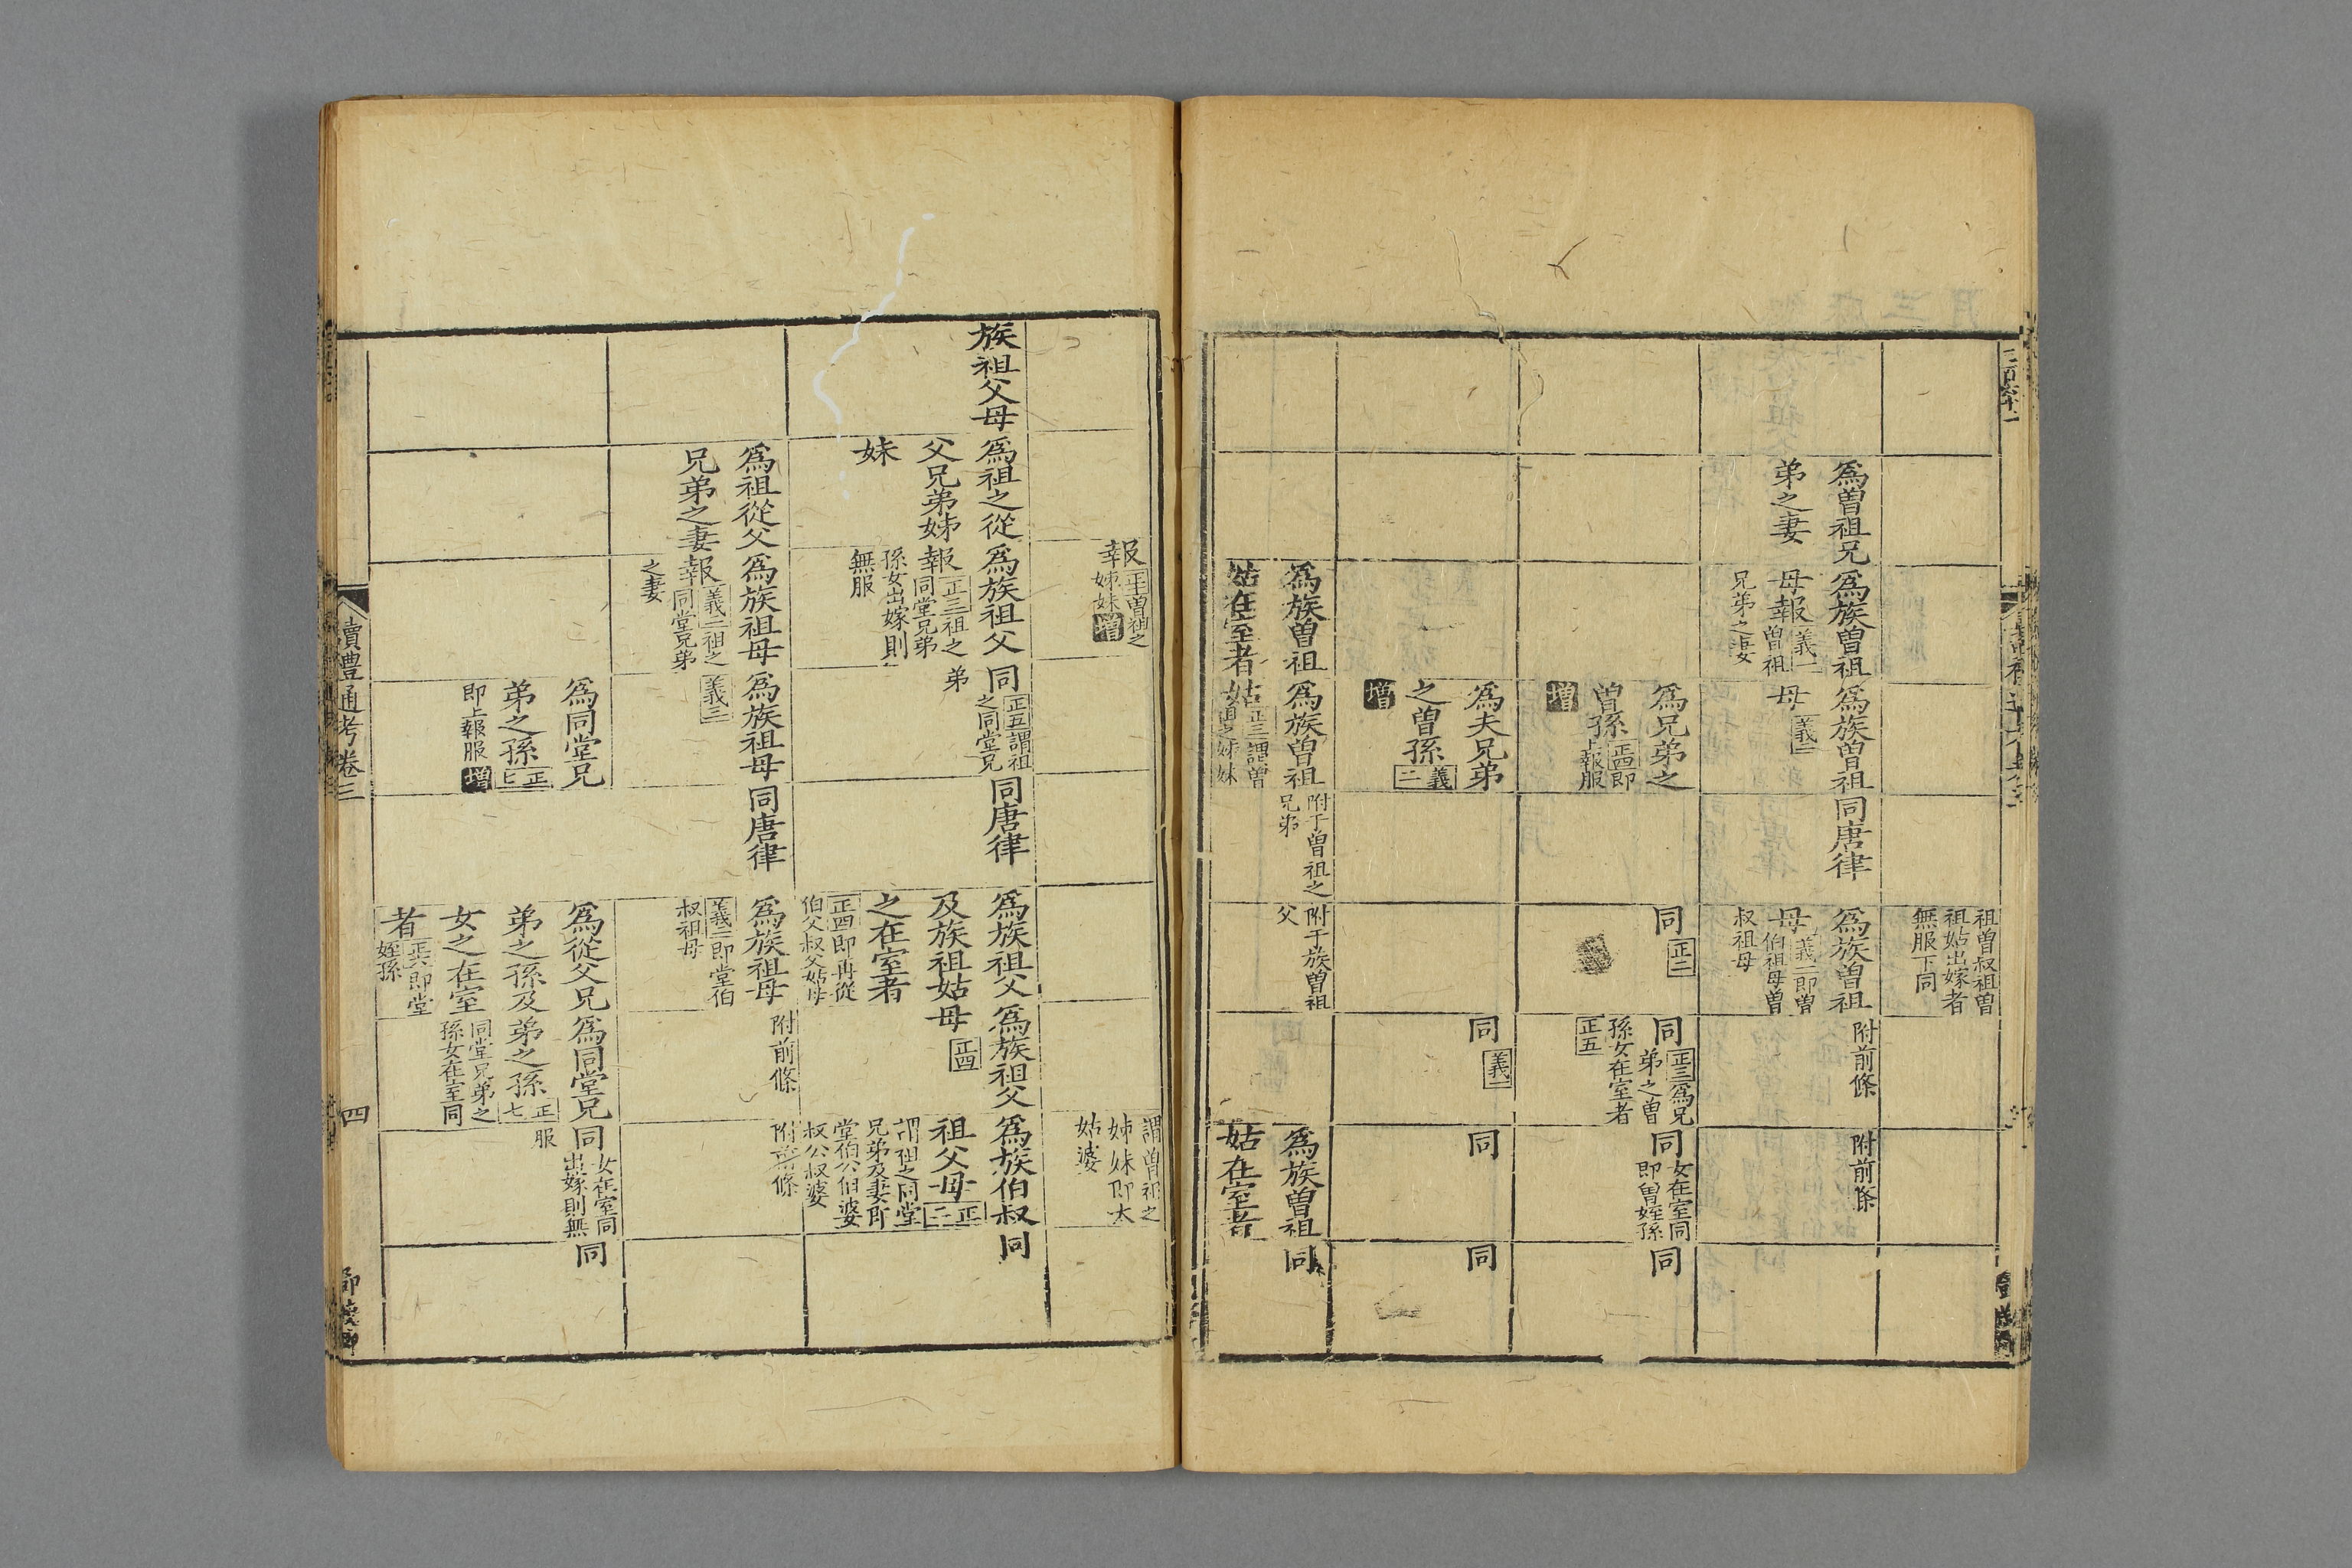 祖曾叔祖曾
祖姑出嫁者
無服下同
爲曾祖兄
弟之妻
爲族曾祖
母報
義一
曾祖
兄弟之妻
爲族曾祖
母
義二
同唐律
爲族曾祖
母
義二即曾
伯祖母曾
叔祖母
附前條
附前條
爲兄弟之
曾孫
正四即
上報服
增
同
正二
同
正三爲兄
弟之曾
孫女在室者
正五
同
女在室同
即曾姪孫
同
爲夫兄弟
之曾孫
義
二
增
同
義一
同
同
爲族曾祖
姑在室者
爲族曾祖
姑
正三謂曾
祖之姊妹
附于曾祖之
兄弟
附于族曾祖
父
爲族曾祖
姑在室者
同
報
正曾祖之
姊妹
增
謂曾祖之
姊妹即太
姑婆
族祖父母
爲祖之從
父兄弟姊
妹
爲族祖父
報
正三祖之
同堂兄弟
孫女出嫁則
無服
同
正五謂祖
之同堂兄
弟
同唐律
爲族祖父
及族祖姑
之在室者
正四即再從
伯父叔父姑母
爲族祖父
母
正四
爲族伯叔
祖父母
正
二
謂祖之同堂
兄弟及妻即
堂伯公伯婆
叔公叔婆
同
爲祖從父
兄弟之妻
爲族祖母
報
義二祖之
同堂兄弟
之妻
爲族祖母
義三
同唐律
爲族祖母
義三即堂伯
叔祖母
附前條
附前條
爲同堂兄
弟之孫
正
七
即上報服
增
爲從父兄
弟之孫及
女之在室
者
正六即堂
姪孫
爲同堂兄
弟之孫
正
七
同堂兄弟之
孫女在室同
服
同
女在室同
出嫁則無
同
讀禮通考卷三
四